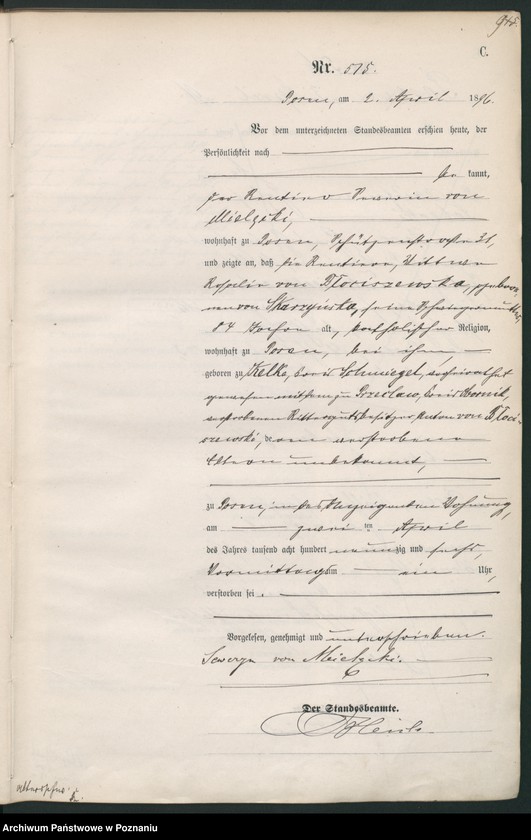 945.
C.
Nr. 515.
Posen, am 2. April 1896.
Vor dem unterzeichneten Standesbeamten erschien heute, der
Persönlichkeit nach
be kannt,
der Rentier Severin von
Mielzcki,
wohnhaft zu Posen, Schützenstraße 21,
und zeigte an, daß die Rentiere, Wittwe
Rosalie von Błociszewska, geborene
von Skarzyńska, seine Schwiegermutter,
84 Jahre alt, katholischer Religion,
wohnhaft zu Posen, bei ihm,
geboren zu Zelke, Kreis Schmiegel, verheirathet
gewesen mit dem zu Przeclaw, Kreis Obornik,
verstorbenen Rittergutsbesitzer Anton von Błoci-
szewski, deren verstorbene
Eltern unbekannt,
zu Posen, in des Anzeigenden Wohnung,
am zwei ten April
des Jahres tausend acht hundert neunzig und sechs,
Vormittags um ein Uhr,
verstorben sei.
Vorgelesen, genehmigt und unterschrieben.
Seweryn von Mielzcki.
Der Standesbeamte.
Altersschw.
Archiwum Państwowe w Poznaniu